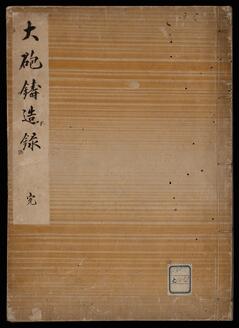 大砲鋳造録
完